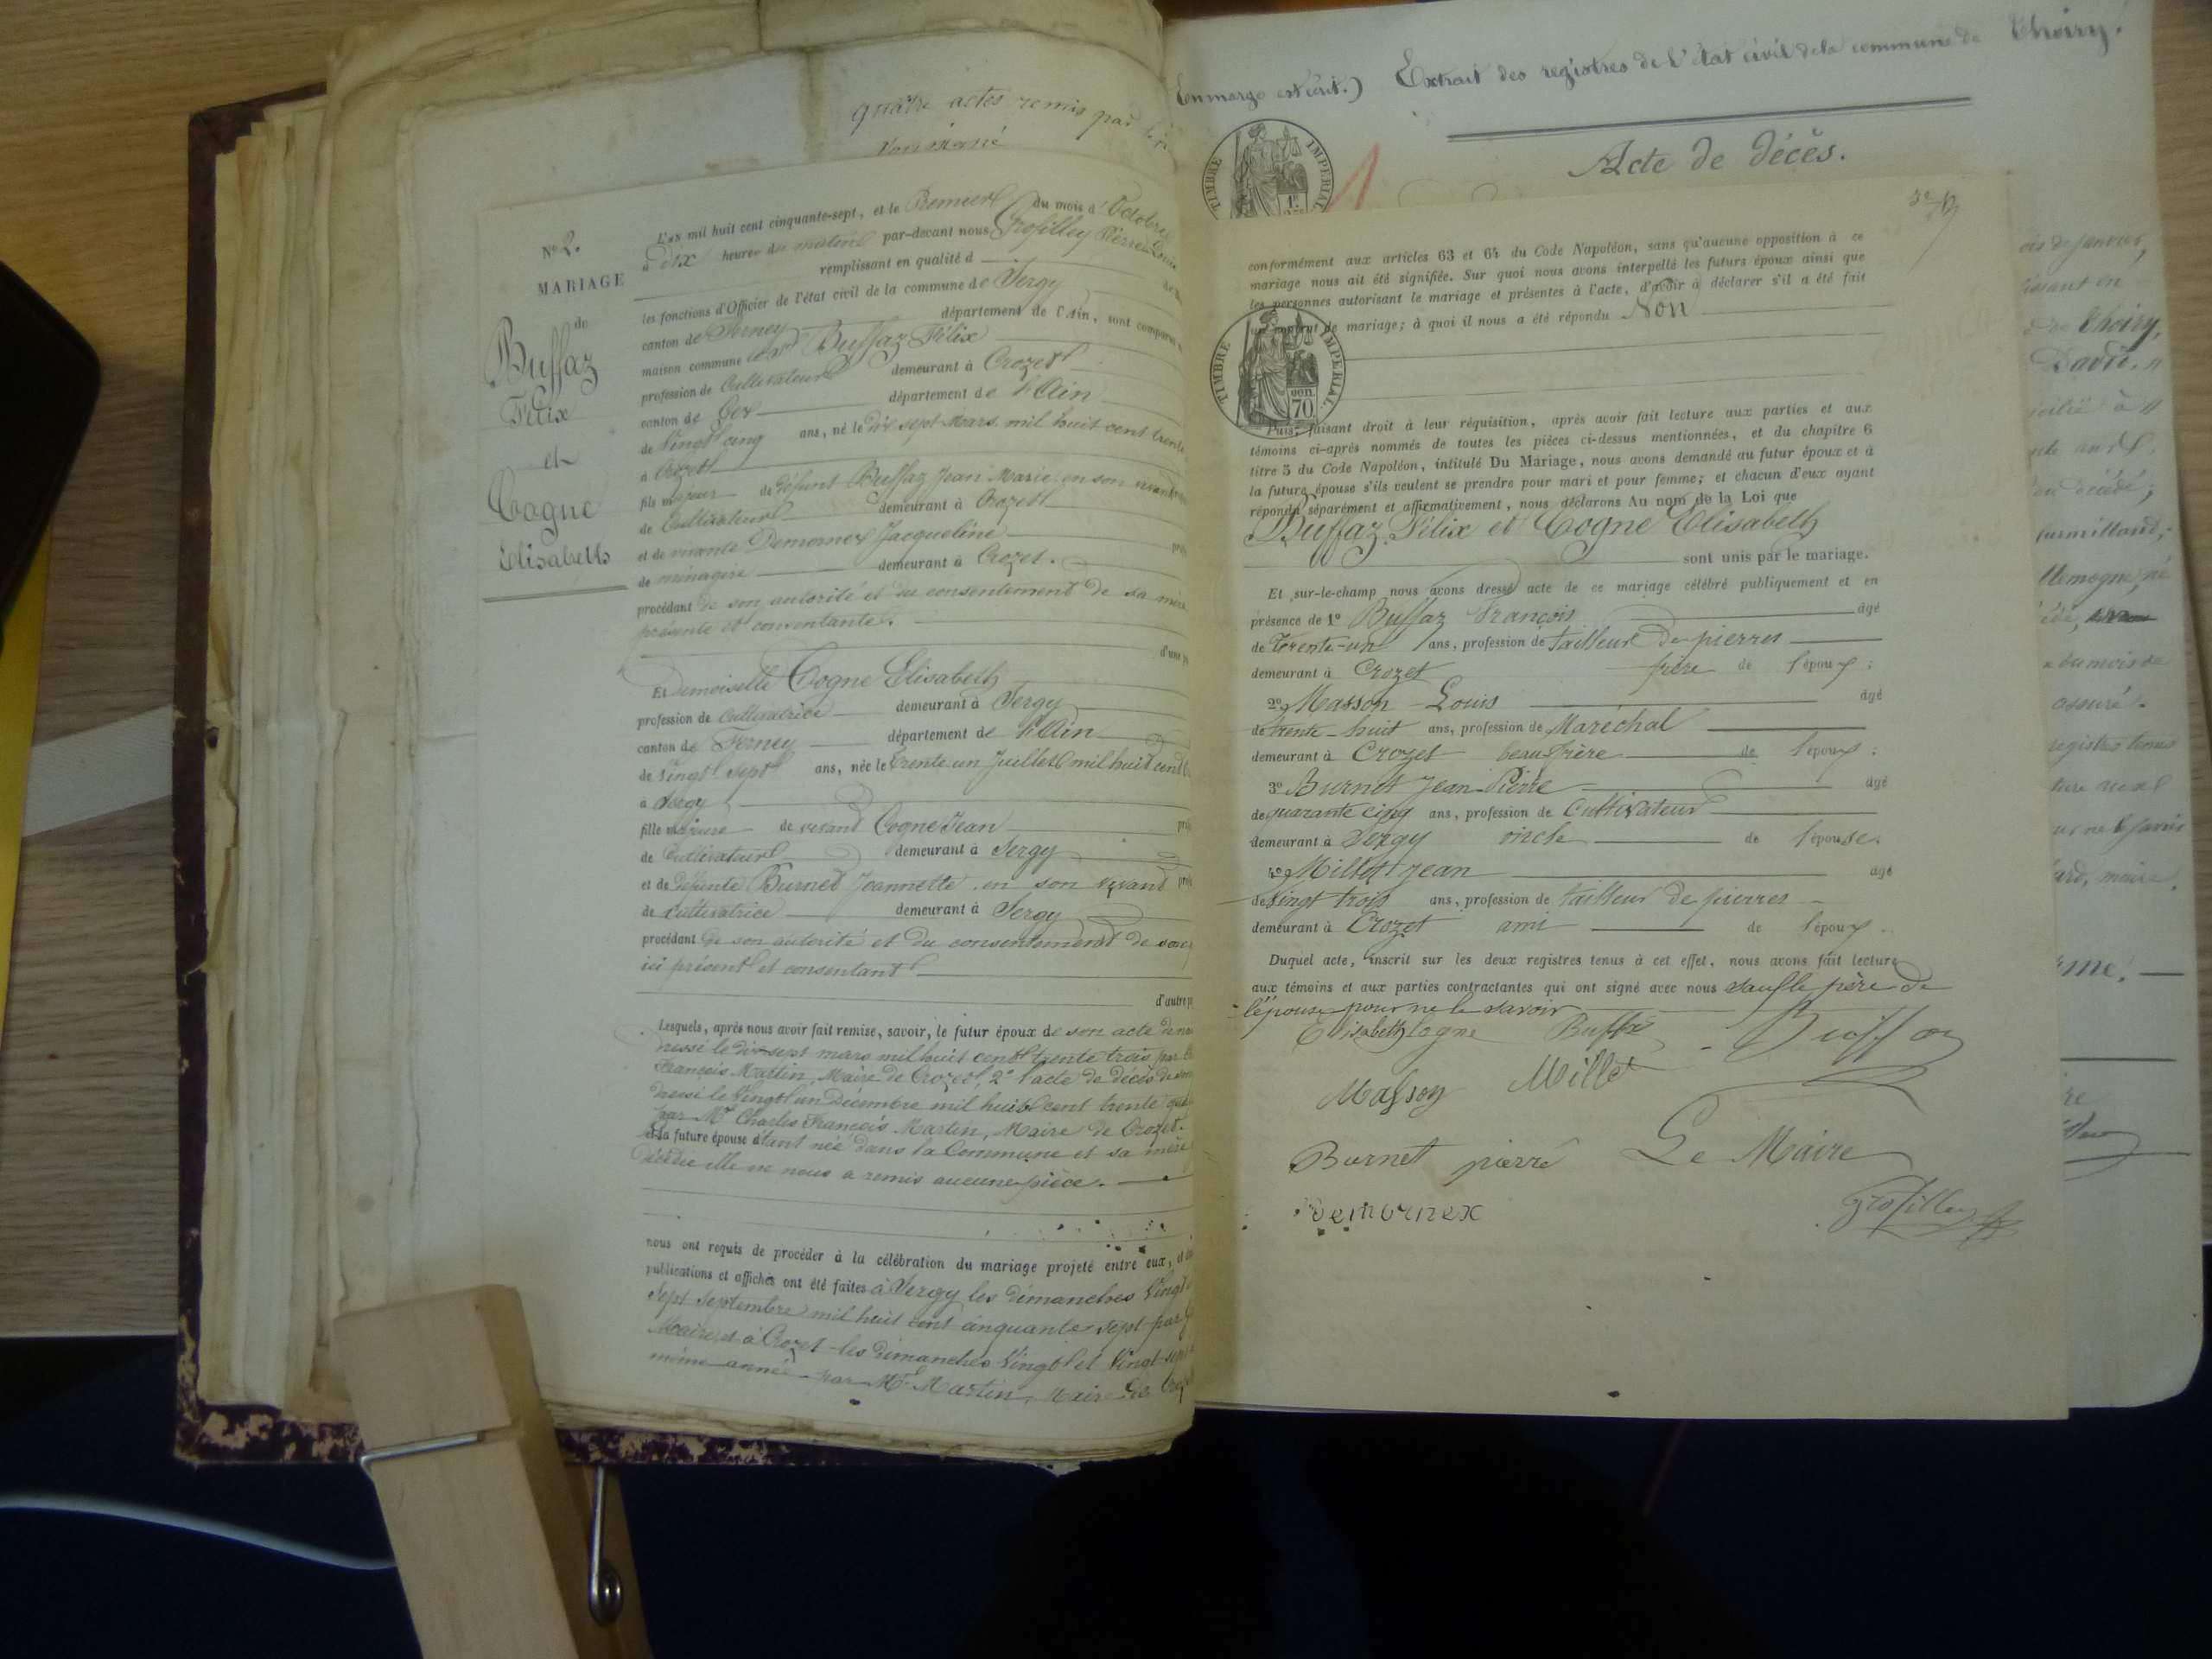 quatre actes remis par
Nº 2.
MARIAGE
de
Buffaz
Félix
et
Cogne
Elisabeth
L'an mil huit cent cinquante-sept, et le Premier du mois d'Octobre
à dix heures du matin par-devant nous Grosfilley Pierre Louis
remplissant en qualité d
les fonctions d'Officier de l'état civil de la commune de Sergy
canton de Ferney département de l'Ain, sont comparus
maison commune Buffaz Félix
profession de Cultivateur demeurant à Crozet
canton de Gex département de l'Ain
de Vingt cinq ans, né le dix sept Mars mil huit cent trente
à Crozet
fils majeur de défunt Buffaz Jean Marie en son vivant
de Cultivateur demeurant à Crozet
et de vivante Demornex Jacqueline
de ménagère demeurant à Crozet.
procédant de son autorité et du consentement de sa mère
présente et consentante.
Et Demoiselle Cogne Elisabeth
profession de Cultivatrice demeurant à Sergy
canton de Ferney département de l'Ain
de Vingt Sept ans, née le trente un Juillet mil huit cent
à Sergy
fille majeure de vivant Cogne Jean
de Cultivateur demeurant à Sergy
et de défunte Burnet Jeannette en son vivant
de cultivatrice demeurant à Sergy
procédant de son autorité et du consentement de son
ici présent et consentant
d'autre
Lesquels, après nous avoir fait remise, savoir, le futur époux de son acte de
dressé le dix sept mars mil huit cent trente trois par
François Martin, Maire de Crozet, 2º l'acte de décès de
dressé le Vingt un Décembre mil huit cent trente
par Mr Charles François Martin, Maire de Crozet.
et la future épouse étant née dans la Commune et sa mère
décédée elle ne nous a remis aucune pièce.
nous ont requis de procéder à la célébration du mariage projeté entre eux, et
publications et affiches ont été faites à Sergy les dimanches Vingt
Sept Septembre mil huit cent cinquante sept par
Maire, et à Crozet les dimanches Vingt et Vingt sept
même année par Mr Martin, Maire de
En marge est écrit.) Extrait des registres de l'état civil de la commune de Thoiry.
Acte de décès.
TIMBRE IMPERIAL
1F
conformément aux articles 63 et 64 du Code Napoléon, sans qu'aucune opposition à ce
mariage nous ait été signifiée. Sur quoi nous avons interpellé les futurs époux ainsi que
les personnes autorisant le mariage et présentes à l'acte, d'avoir à déclarer s'il a été fait
un contrat de mariage; à quoi il nous a été répondu Non
TIMBRE IMPERIAL
70
Puis, faisant droit à leur réquisition, après avoir fait lecture aux parties et aux
témoins ci-après nommés de toutes les pièces ci-dessus mentionnées, et du chapitre 6
titre 5 du Code Napoléon, intitulé Du Mariage, nous avons demandé au futur époux et à
la future épouse s'ils veulent se prendre pour mari et pour femme; et chacun d'eux ayant
répondu séparément et affirmativement, nous déclarons Au nom de la Loi que
Buffaz Félix et Cogne Elisabeth
sont unis par le mariage.
Et sur-le-champ nous avons dressé acte de ce mariage célébré publiquement et en
présence de 1º Buffaz François âgé
de Trente-un ans, profession de tailleur de pierres
demeurant à Crozet frère de l'époux;
2º Masson Louis âgé
de trente-huit ans, profession de Maréchal
demeurant à Crozet beau frère de l'époux;
3º Burnet Jean Pierre âgé
de quarante cinq ans, profession de Cultivateur
demeurant à Sergy oncle de l'épouse.
4º Millet Jean âgé
de Vingt trois ans, profession de tailleur de pierres
demeurant à Crozet ami de l'époux.
Duquel acte, inscrit sur les deux registres tenus à cet effet, nous avons fait lecture
aux témoins et aux parties contractantes qui ont signé avec nous sauf le père de
l'épouse pour ne le savoir
Elisabeth Cogne
Masson Millet
Burnet pierre Le Maire
Demornex Grosfilley
de Thoiry,
David,